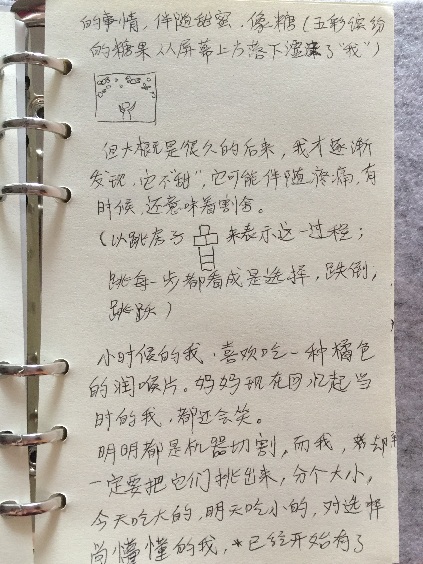 的事情，伴随甜蜜，像糖（五彩缤纷
的糖果从屏幕上方落下淹没了“我”）
但大概是很久的后来，我才逐渐
发现，它不“甜”，它可能伴随疼痛，有
时候，还意味着割舍。
（以跳房子 来表示这一过程；
跳每一步都看成是选择，跌倒，
跳跃）
小时候的我，喜欢吃一种橘色
的润喉片。妈妈现在回忆起当
时的我，都还会笑。
明明都是机器切割，而我，却
一定要把它们挑出来，分个大小，
今天吃大的，明天吃小的，对选择
尚懵懂的我，*已经开始有了